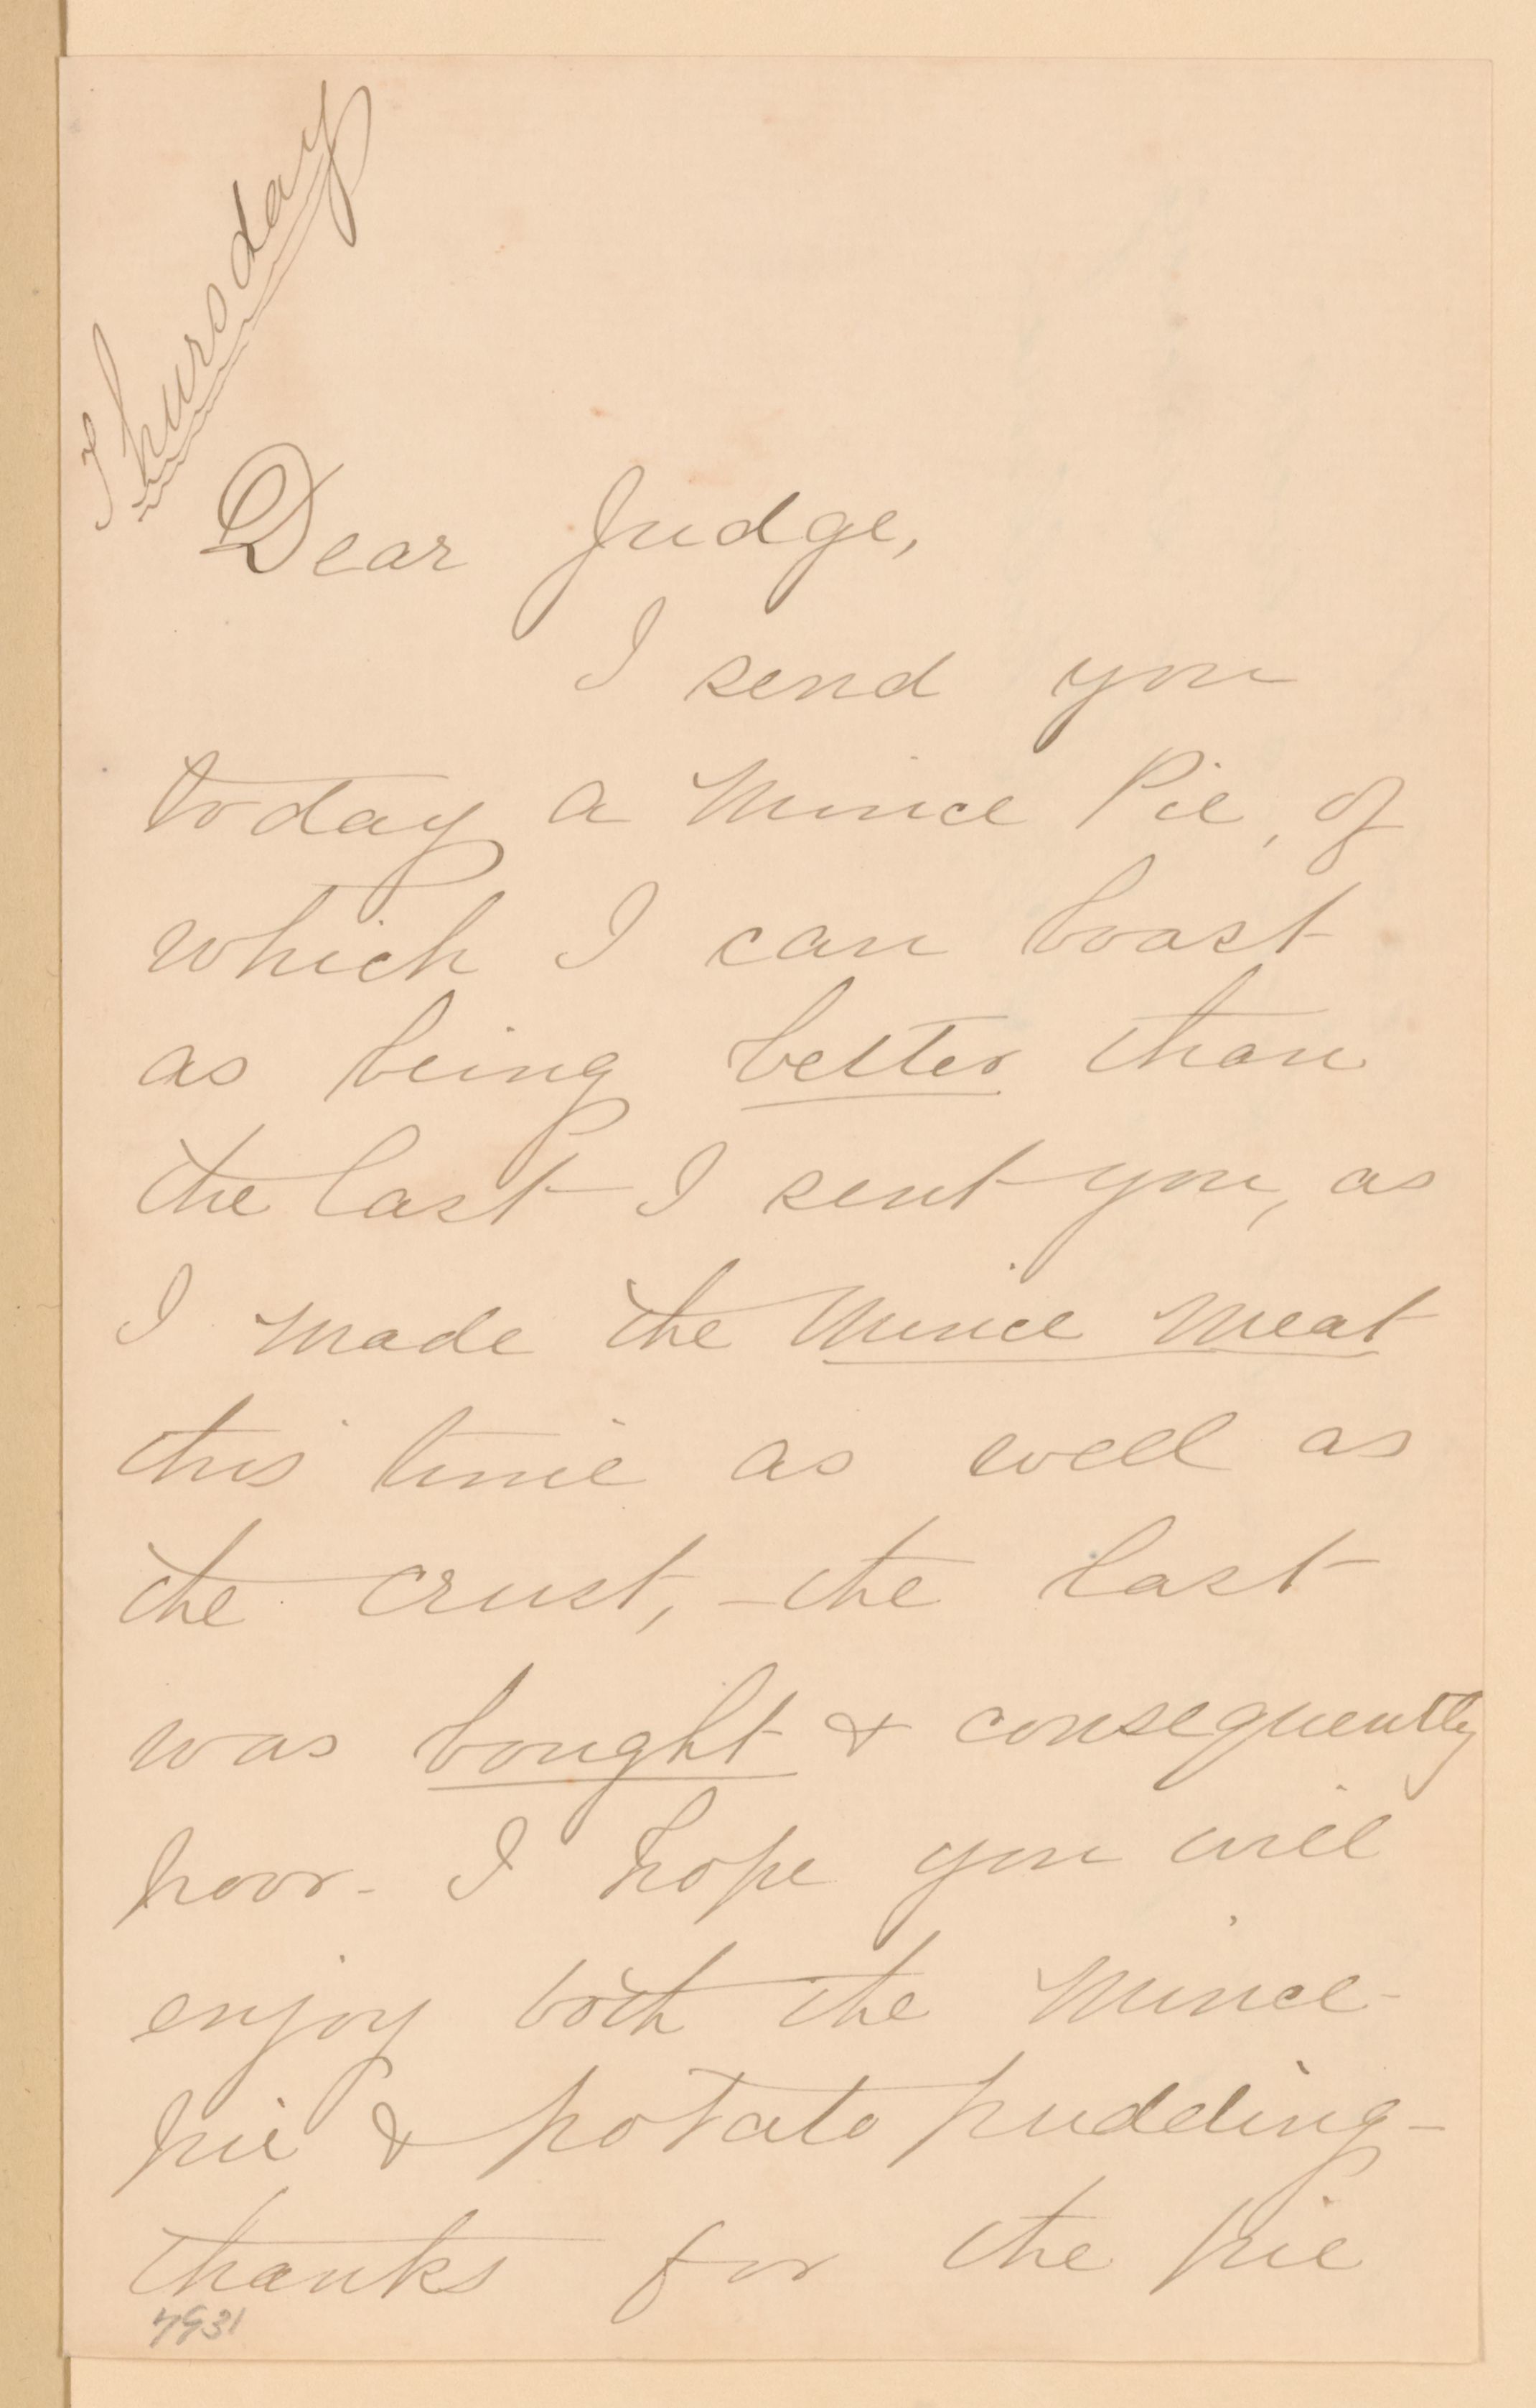 Thursday
Dear Judge,
I send you
today a Mince Pie, of
which I can boast
as being better than
the last I sent you, as
I made the Mince Meat
this time as well as
the crust, - the last
was bought & consequently
poor - I hope you will
enjoy both the Mince-
pie & potato pudding -
thanks for the pie
7931